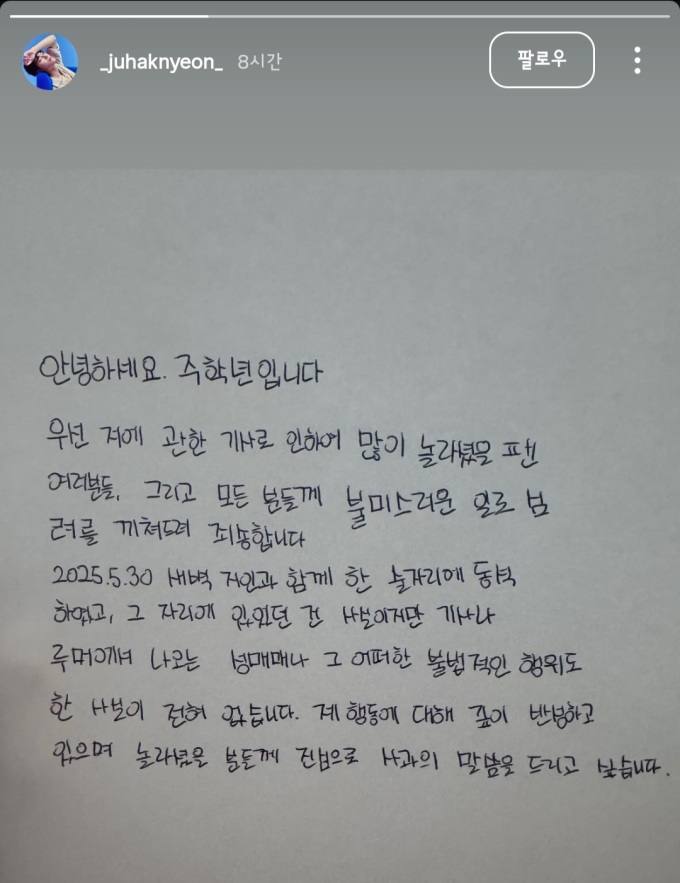 _juhaknyeon_ 8시간 팔로우
안녕하세요. 주학년입니다
우선 저에 관한 기사로 인하여 많이 놀라셨을 팬
여러분들, 그리고 모든 분들께 불미스러운 일로 심
려를 끼쳐드려 죄송합니다
2025.5.30 새벽 지인과 함께 한 술자리에 동석
하였고, 그 자리에 있었던 건 사실이지만 기사나
루머에서 나오는 성매매나 그 어떠한 불법적인 행위도
한 사실이 전혀 없습니다. 제 행동에 대해 깊이 반성하고
있으며 놀라셨을 분들께 진심으로 사과의 말씀을 드리고 싶습니다.